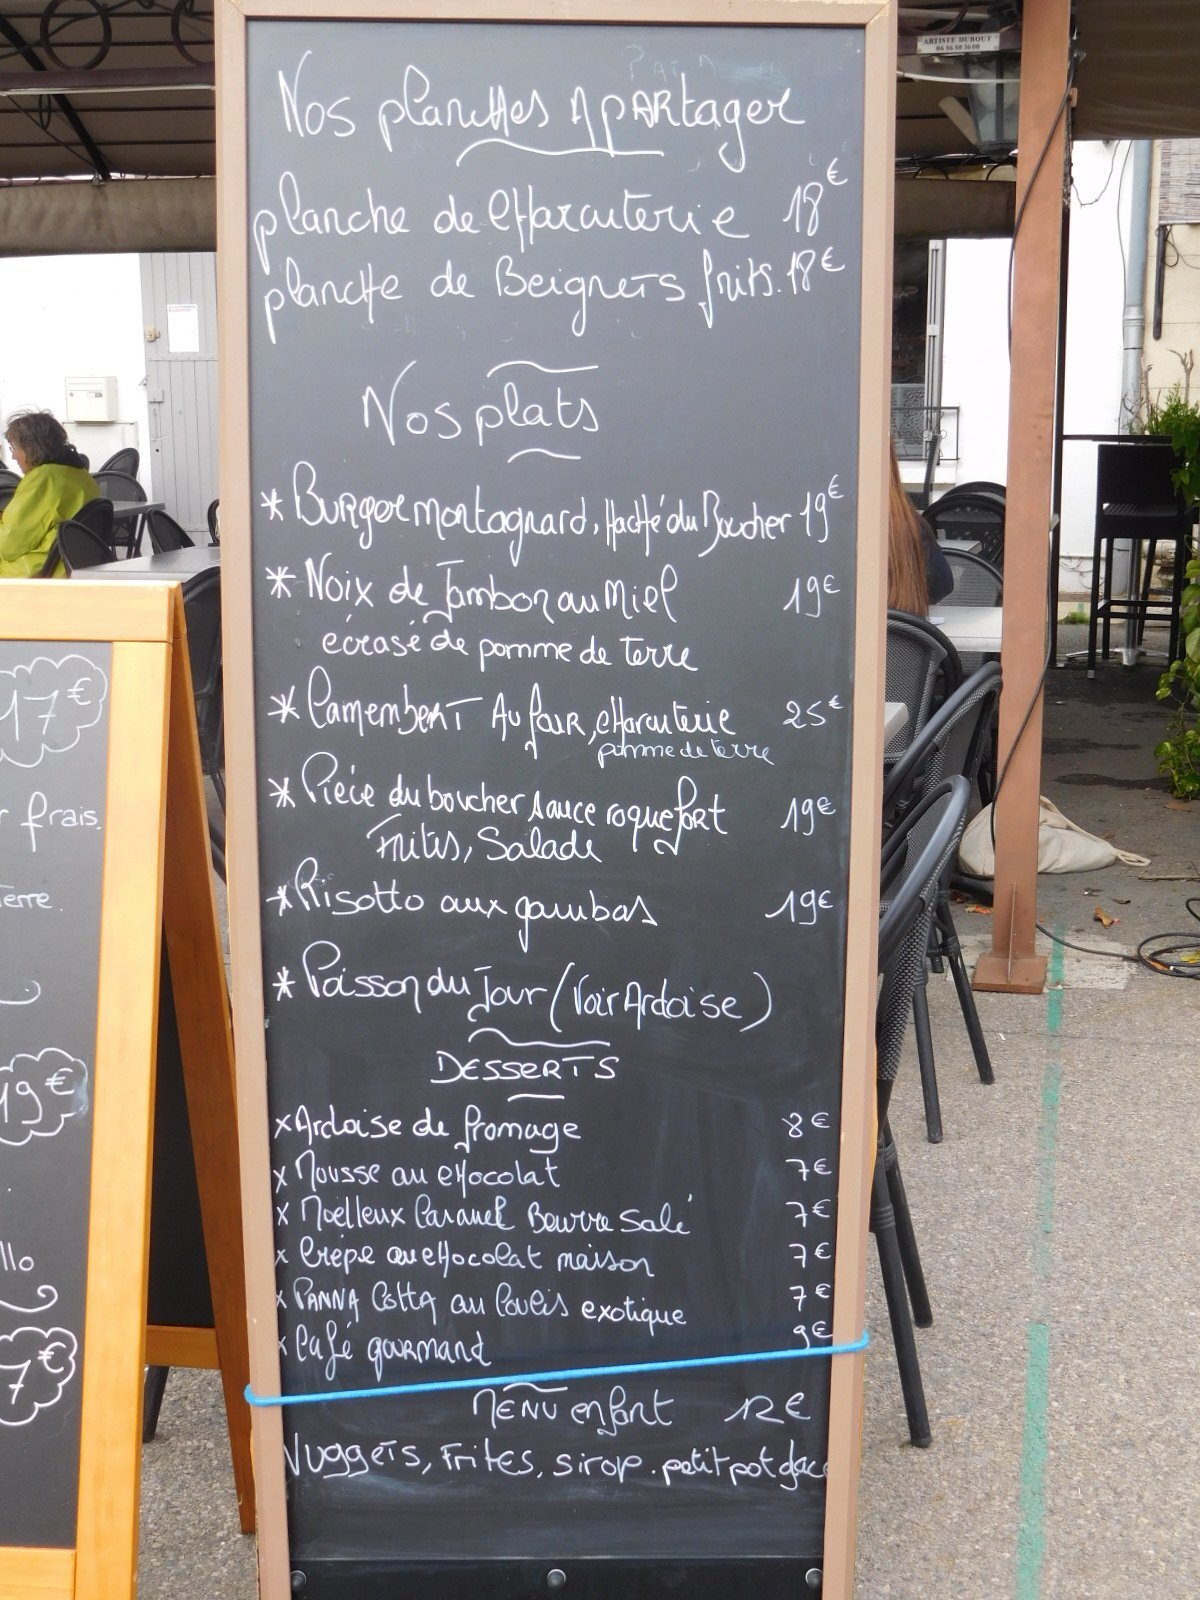 ARTISTE DUBOUT
06 56 80 36 00
Nos planches A PARtager
planche de cHarcuterie 18€
plancHe de BeigneTs frits. 18€
Nos plats
* BURgeR montagnard, HacHé du Boucher 19€
* Noix de Jambon au Miel 19€
écrasé de pomme de terre
* CamembeRT Au fouR, cHarcuterie 25€
pomme de terre
* Piéce du boucher sauce roquefort 19€
Frites, Salade
* Risotto aux gambas 19€
* Poisson du Jour (Voir Ardoise)
DesserTS
x Ardoise de fromage 8€
x Mousse au cHocolat 7€
x Moelleux Caramel Beurre Salé 7€
x Crèpe au cHocolat maison 7€
x PANNA COTTA au Coulis exotique 7€
x Café gouRmand 9€
MENU enfant 12€
NuggeTs, Frites, sirop. petit pot glace
17€
frais.
Terre.
19€
llo
7€